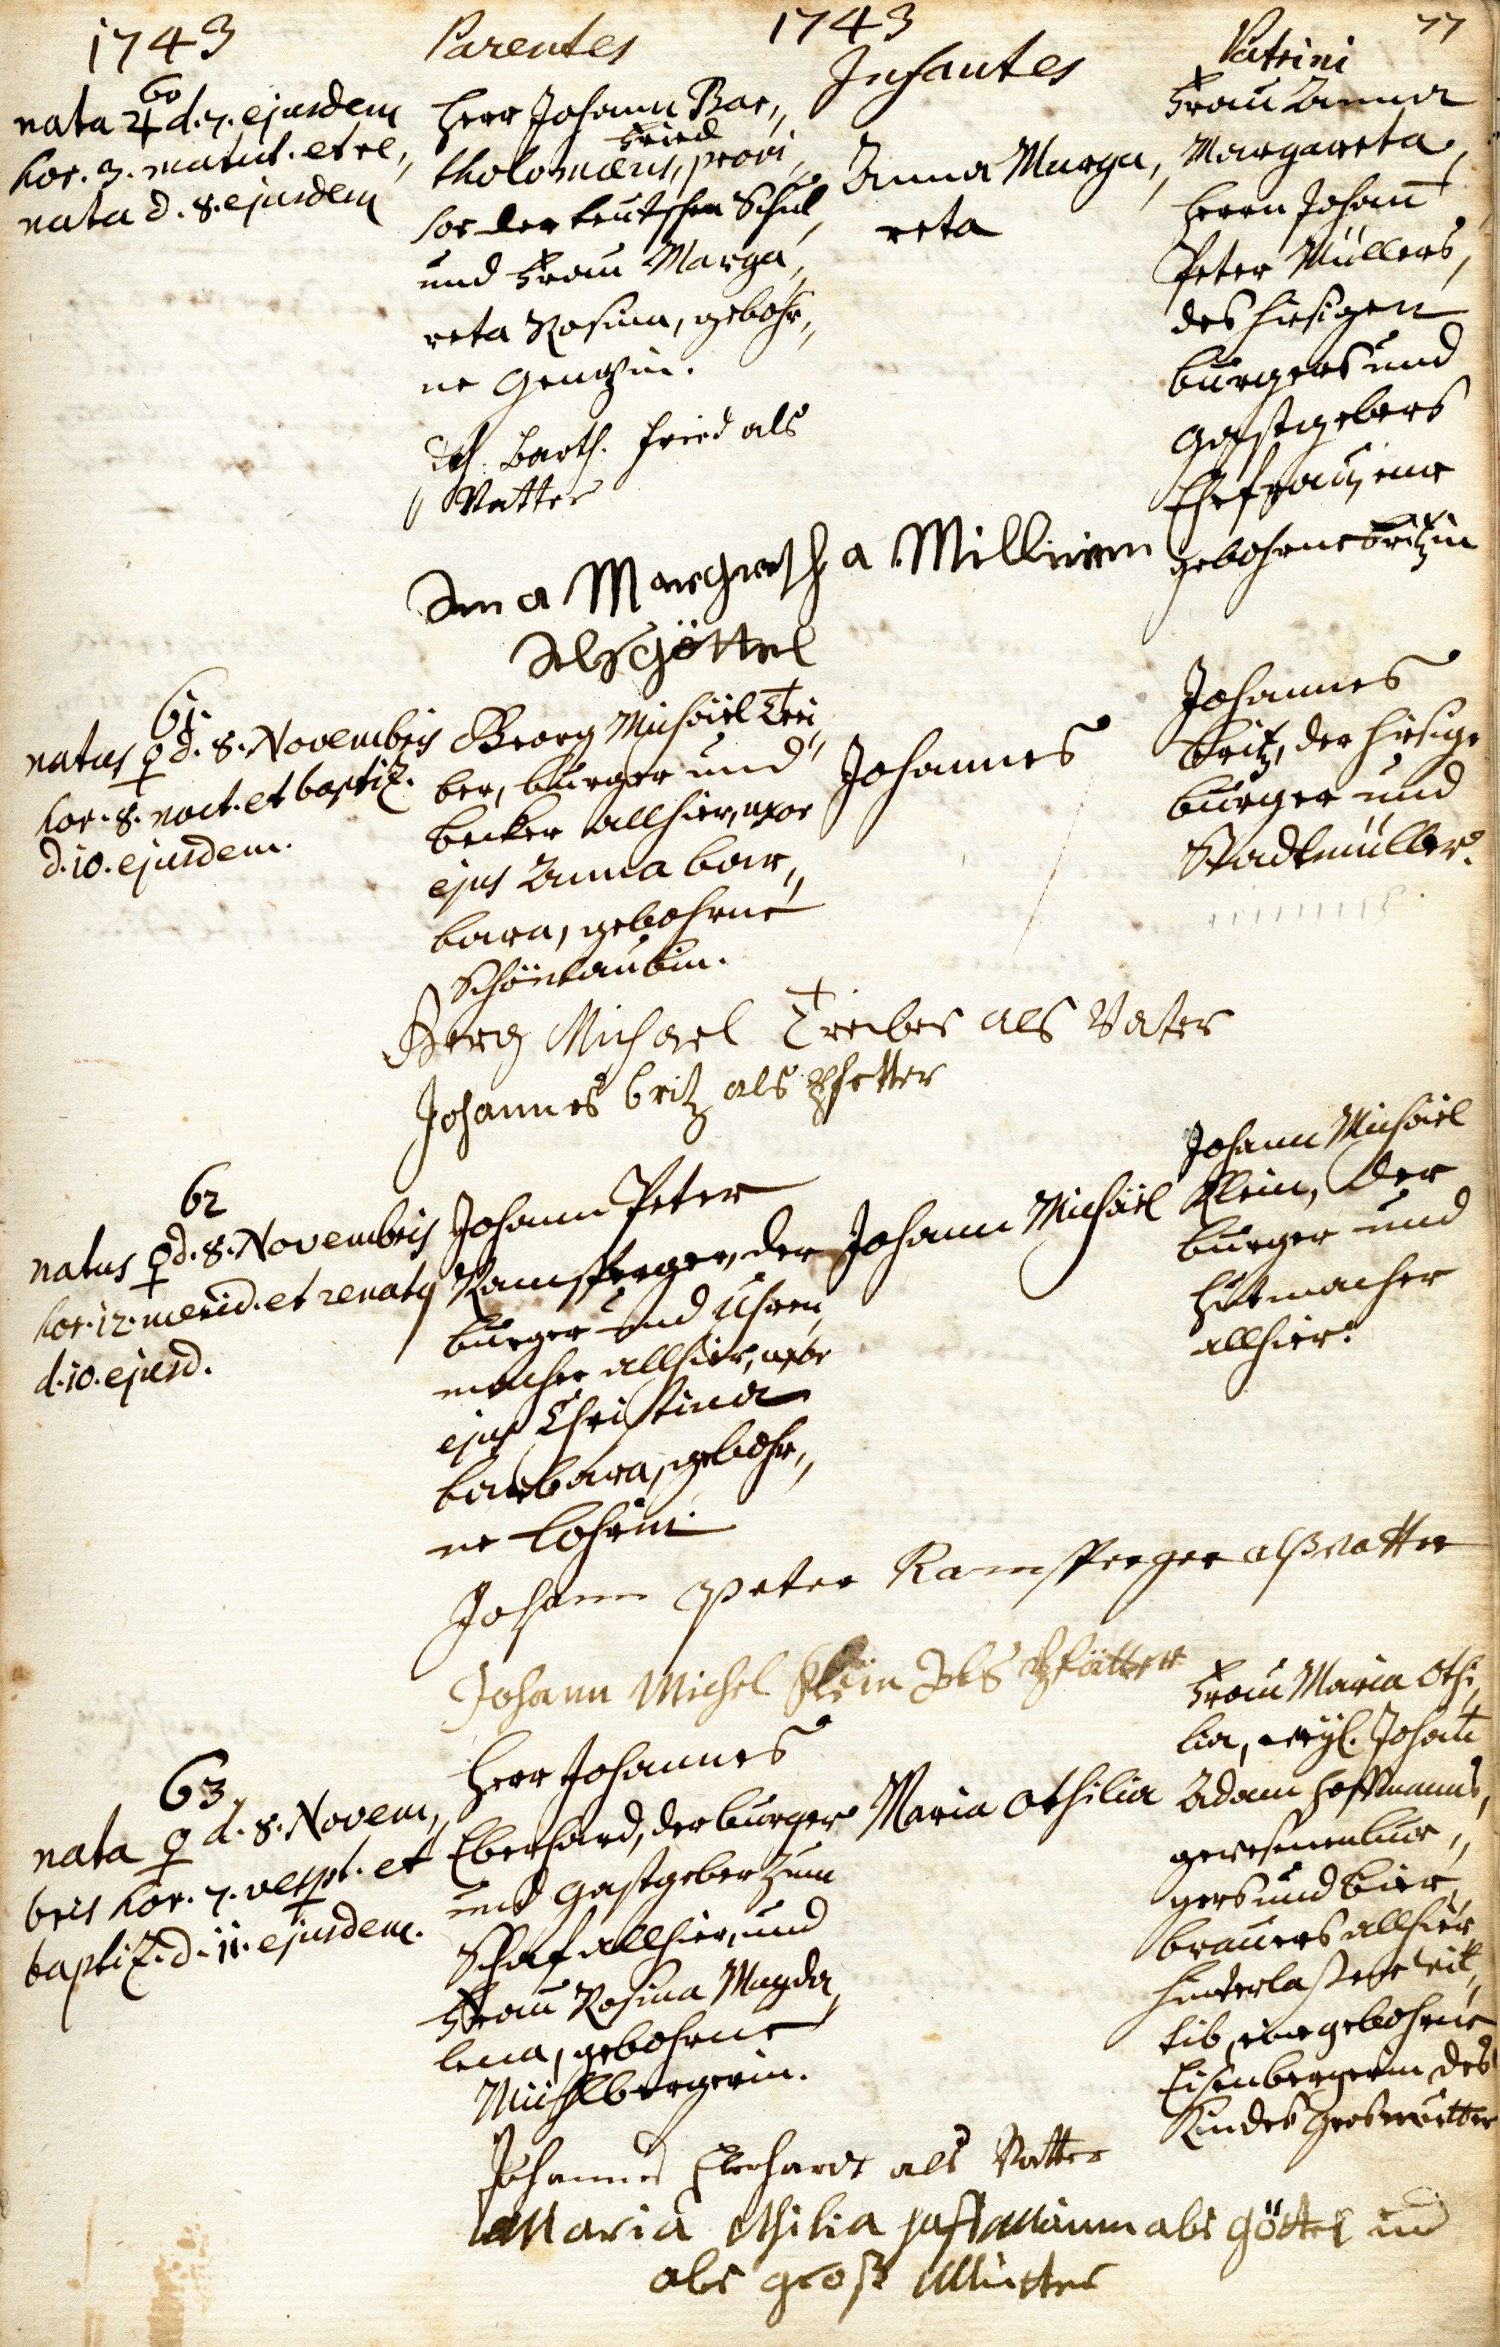 1743
Parentes
1743
Infantes
Patrini
77
60
nata ♃ d. 7. ejusdem
hor. 3. matut. et re,
nata d. 8. ejusdem
Herr Johann Bar,,
Fried
tholomæus, provi,
sor der teutschen Schul,
und Frau Marga,,
reta Rosina, gebohr,,
ne Gentzin.
Joh. Barth. Fried als
Vatter
Anna Marga,
reta
Frau Anna
Margareta,
Herrn Johann
Peter Müllers,
des hiesigen
burgers und
Gastgebers
Ehefrau, eine
gebohrne Britzin
Ana Margreth a Millerin
Als Göttel
61.
natus ♀ d. 8. Novembris
hor. 8. noct. et baptiz.
d. 10. ejusdem.
Georg Michäel Trei,
ber, burger und
becker allhier, uxor
ejus Anna bar,,
bara, gebohrne
Schönlaubin.
Johannes
Johannes
Britz, der hiesige
burger und
Stadtmüller.
Georg Michael Treiber als Vater
Johannes Britz als Pfetter
62
natus ♀ d. 8. Novembris
hor. 12. merid. et renatus
d. 10. ejusd.
Johann Peter
Ramsperger, der
burger und Uhren,
macher allhier, uxor
ejus Christina
barbara, gebohr,,
ne Lohrin.
Johann Michäel
Johann Michäel
Klein, der
burger und
Hutmacher
allhier.
Johann Peter Ramsperger alß Vatter
Johann Michel Klein Als Pfätter
63.
nata ♀ d. 8. Novem,
bris hor. 7. vespt. et
baptiz. d. 11. ejusdem.
Herr Johannes
Eberhard, der burger
und Gastgeber zum
Schaf allhier, und
Frau Rosina Magda,
lena, gebohrne
Mühlbergerin.
Maria Othilia
Frau Maria Othi,
lia, weyl. Johann
Adam Hoffmanns,
gewesenen bur,,
gers und bier,
brauers allhier
hinterlaßene Wit,
tib, eine gebohrne
Eisenbergerin des
Kindes Grosmutter
Johannes Eberhardt als Vatter
Maria Othilia Hoffmännin als Göttel und
als groß Mutter